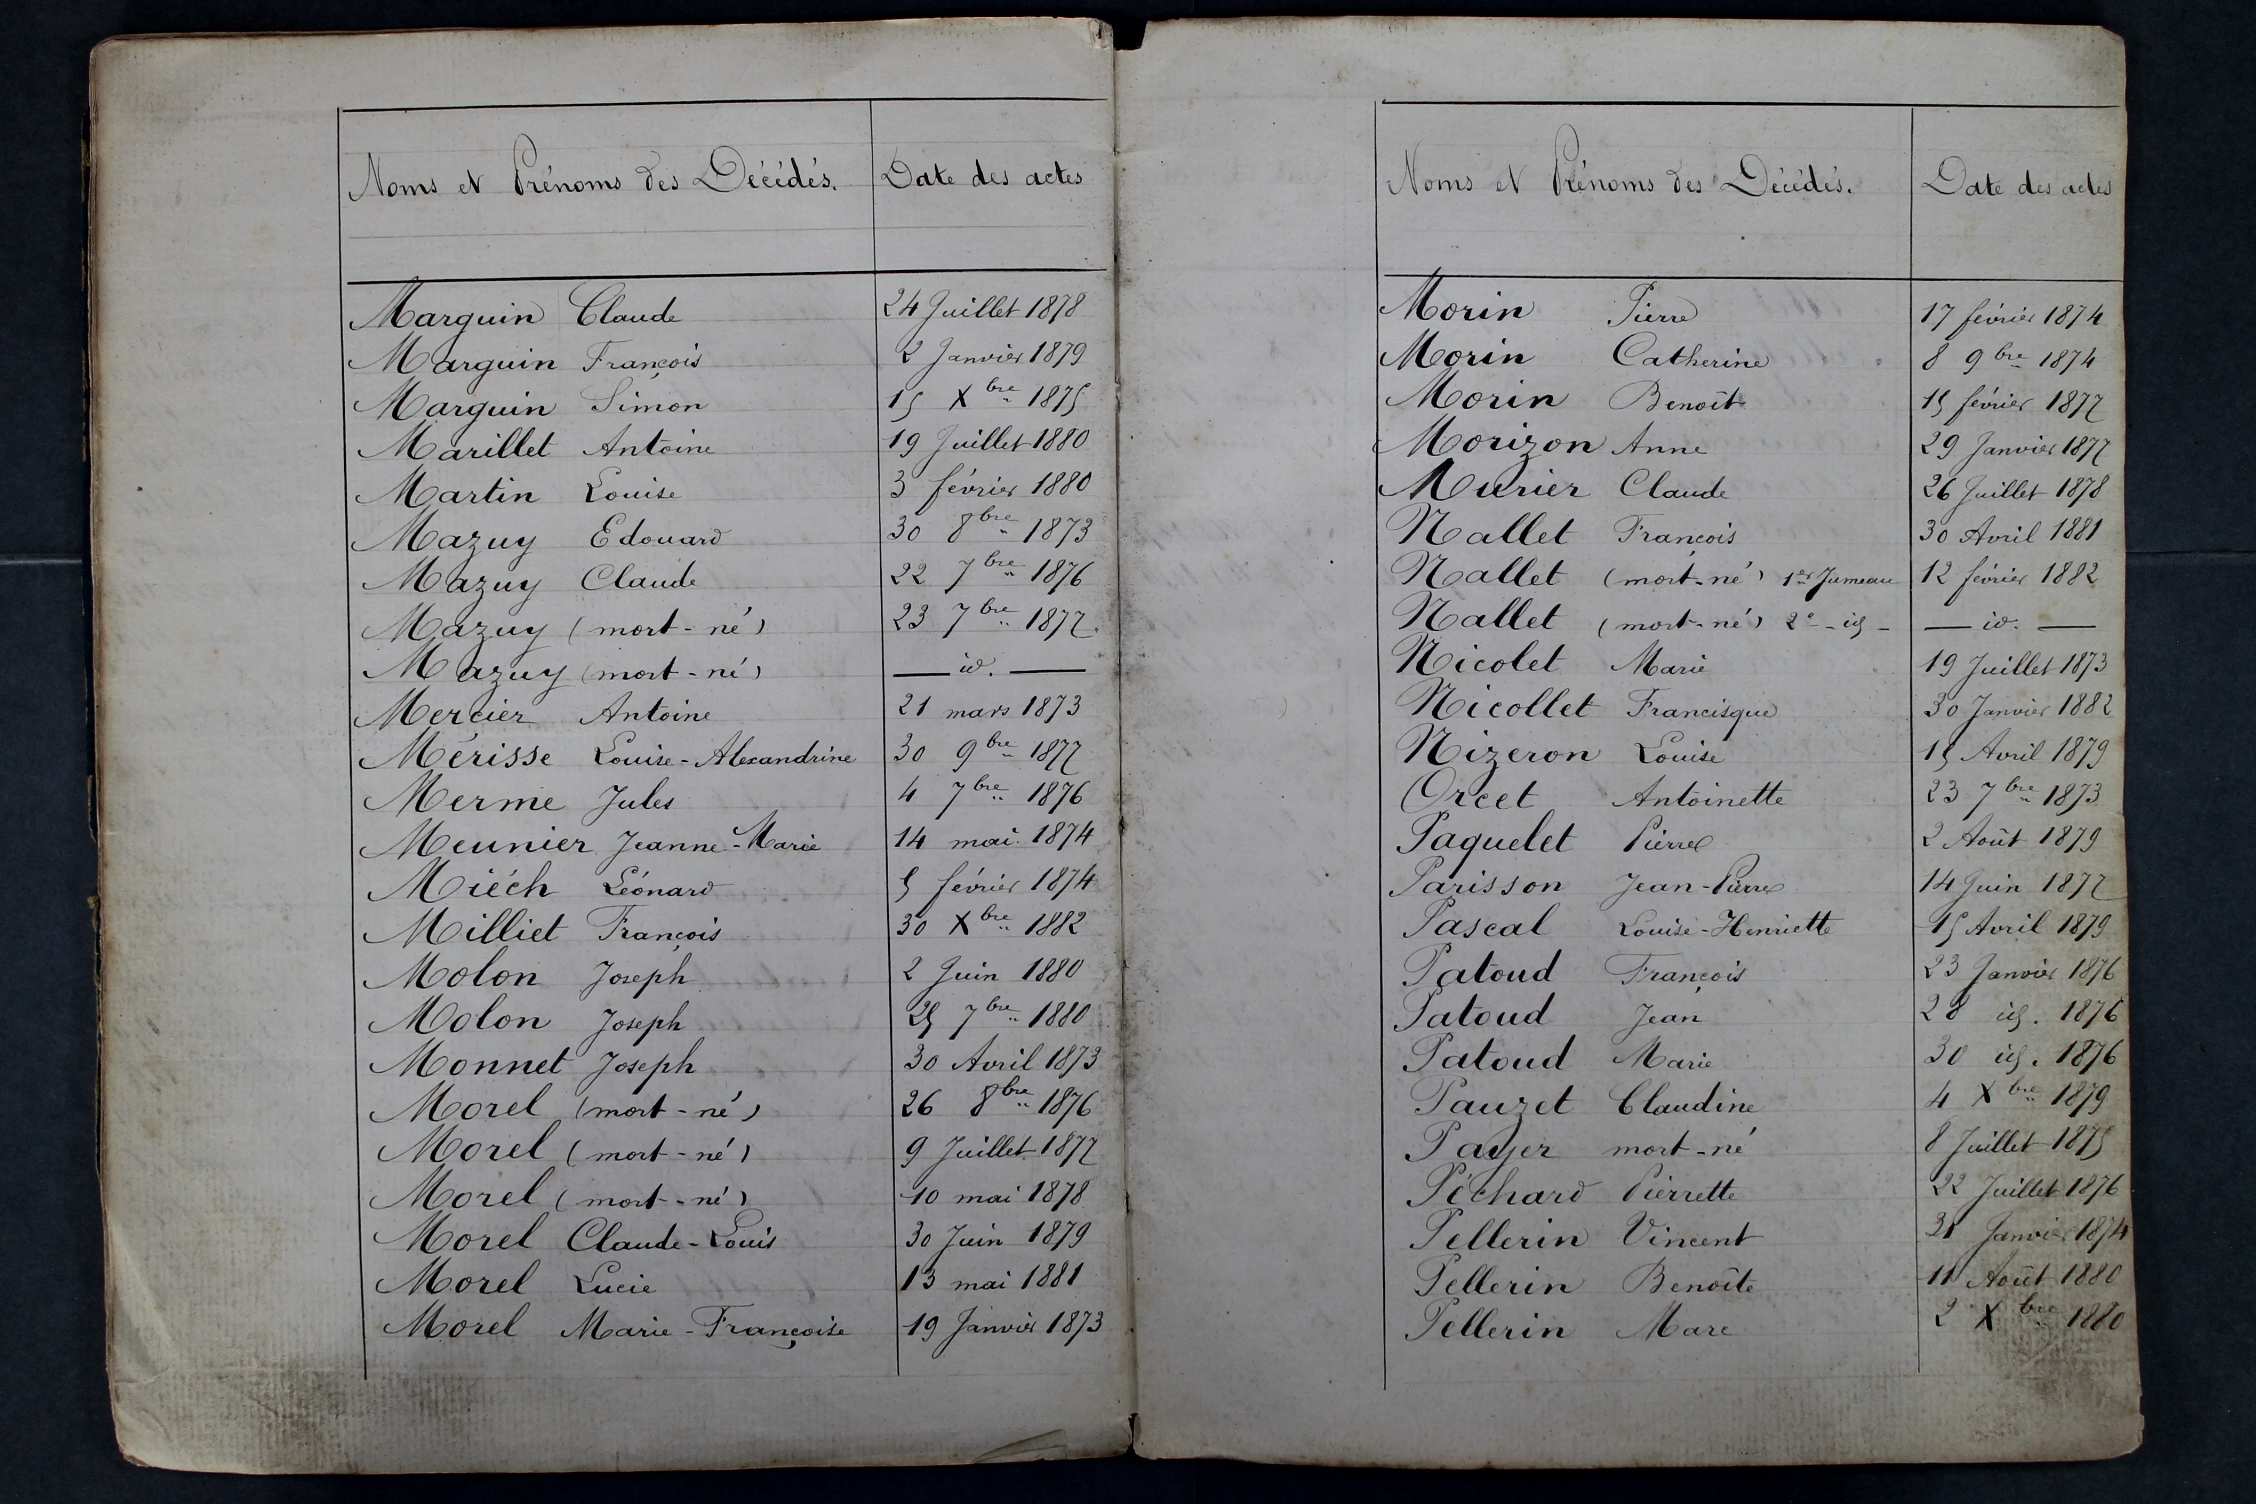 Noms et Prénoms des Décédés. Date des actes
Marguin Claude 24 Juillet 1878
Marguin François 2 Janvier 1879
Marguin Simon 15 Xbre 1875
Marillet Antoine 19 Juillet 1880
Martin Louise 3 février 1880
Mazuy Edouard 30 8bre 1873
Mazuy Claude 22 7bre 1876
Mazuy (mort-né) 23 7bre 1877
Mazuy (mort-né) — id. —
Mercier Antoine 21 mars 1873
Mérisse Louise-Alexandrine 30 9bre 1877
Merme Jules 4 7bre 1876
Meunier Jeanne-Marie 14 mai 1874
Miéch Léonard 5 février 1874
Milliet François 30 Xbre 1882
Molon Joseph 2 Juin 1880
Molon Joseph 25 7bre 1880
Monnet Joseph 30 Avril 1873
Morel (mort-né) 26 8bre 1876
Morel (mort-né) 9 Juillet 1877
Morel (mort-né) 10 mai 1878
Morel Claude-Louis 30 Juin 1879
Morel Lucie 13 mai 1881
Morel Marie-Françoise 19 Janvier 1873
Noms et Prénoms des Décédés. Date des actes
Morin Pierre 17 février 1874
Morin Catherine 8 9bre 1874
Morin Benoît 15 février 1877
Morizon Anne 29 Janvier 1877
Murier Claude 26 Juillet 1878
Nallet François 30 Avril 1881
Nallet (mort-né) 1er Jumeau 12 février 1882
Nallet (mort-né) 2e - id - — id. —
Nicolet Marie 19 Juillet 1873
Nicollet Francisque 30 Janvier 1882
Nizeron Louise 15 Avril 1879
Orcet Antoinette 23 7bre 1873
Paquelet Pierre 2 Août 1879
Parisson Jean-Pierre 14 Juin 1877
Pascal Louise-Henriette 15 Avril 1879
Patoud François 23 Janvier 1876
Patoud Jean 28 id. 1876
Patoud Marie 30 id. 1876
Pauzet Claudine 4 Xbre 1879
Payer mort-né 8 Juillet 1875
Péchard Pierrette 22 Juillet 1876
Pellerin Vincent 31 Janvier 1874
Pellerin Benoîte 11 Août 1880
Pellerin Marc 2 Xbre 1880